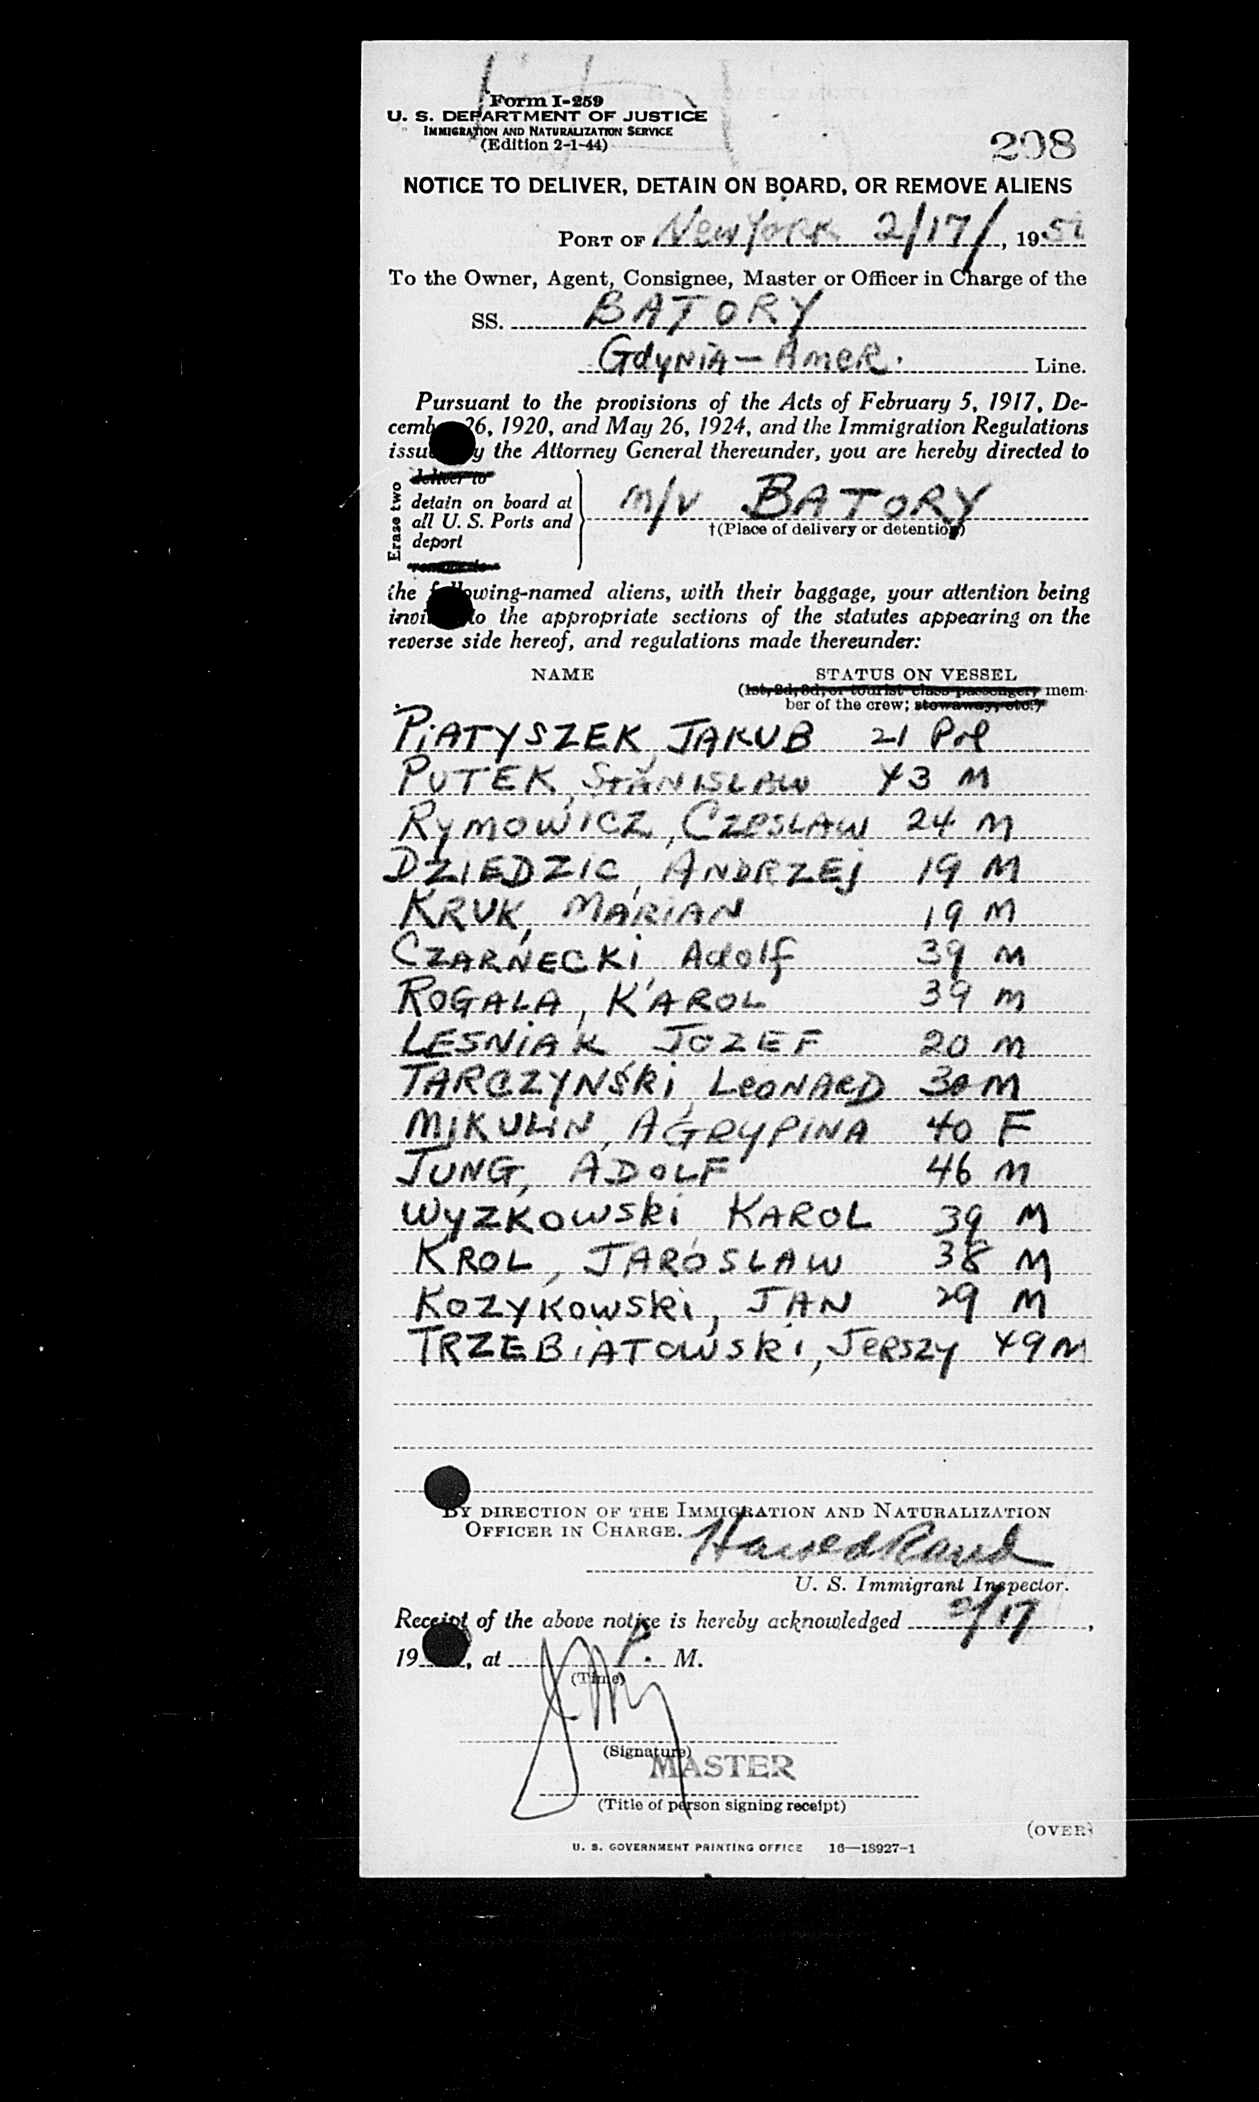 Form I-259
U. S. DEPARTMENT OF JUSTICE
IMMIGRATION AND NATURALIZATION SERVICE
(Edition 2-1-44)
298
NOTICE TO DELIVER, DETAIN ON BOARD, OR REMOVE ALIENS
PORT OF New York 2/17/, 1951
To the Owner, Agent, Consignee, Master or Officer in Charge of the
SS. BATORY
GdyNiA – AmeR. Line.
Pursuant to the provisions of the Acts of February 5, 1917, De-
cember 26, 1920, and May 26, 1924, and the Immigration Regulations
issued by the Attorney General thereunder, you are hereby directed to
Erase two
deliver to
detain on board at
all U. S. Ports and
deport
m/v BATORY
†(Place of delivery or detention)
the following-named aliens, with their baggage, your attention being
invited to the appropriate sections of the statutes appearing on the
reverse side hereof, and regulations made thereunder:
NAME STATUS ON VESSEL
(1st, 2d, 3d, or tourist class passenger, mem-
ber of the crew; stowaway, etc.)
PiATYSZEK, JAKUB 21 Pol
PUTEK, STANISLAW 43 M
RYMOWICZ, CZESLAW 24 M
DZIEDZIC, ANDRZEj 19 M
KRUK, MARIAN 19 M
CZARNECKi, Adolf 39 M
ROGALA, KAROL 39 M
LESNiAK JOZEF 20 M
TARCZYNSKi, LeONARD 30 M
MiKULIN, AGRYPINA 40 F
JUNG, ADOLF 46 M
WYZKOWSki KAROL 39 M
KROL, JAROSLAW 38 M
KOZYKOWSki, JAN 29 M
TRZEBiATOWSki, JeRSZy 49 M
BY DIRECTION OF THE IMMIGRATION AND NATURALIZATION
OFFICER IN CHARGE.
U. S. Immigrant Inspector.
Receipt of the above notice is hereby acknowledged 2/17,
19, at P. M.
(Time)
(Signature)
MASTER
(Title of person signing receipt)
(OVER)
U. S. GOVERNMENT PRINTING OFFICE 16—18927-1